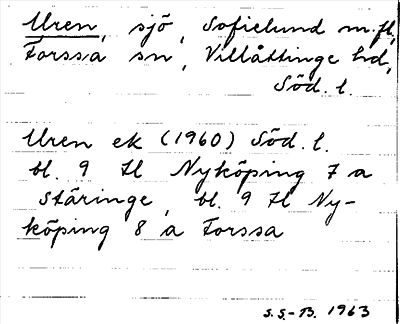 Uren, sjö, Sofielund m.fl,
Forssa sn, Villåttinge hd,
Söd. l.
Uren ek (1960) Söd. l.
bl. 9 H Nyköping 7 a
Stäringe, bl. 9 H Ny-
köping 8 a Forssa
S.S.-B. 1963